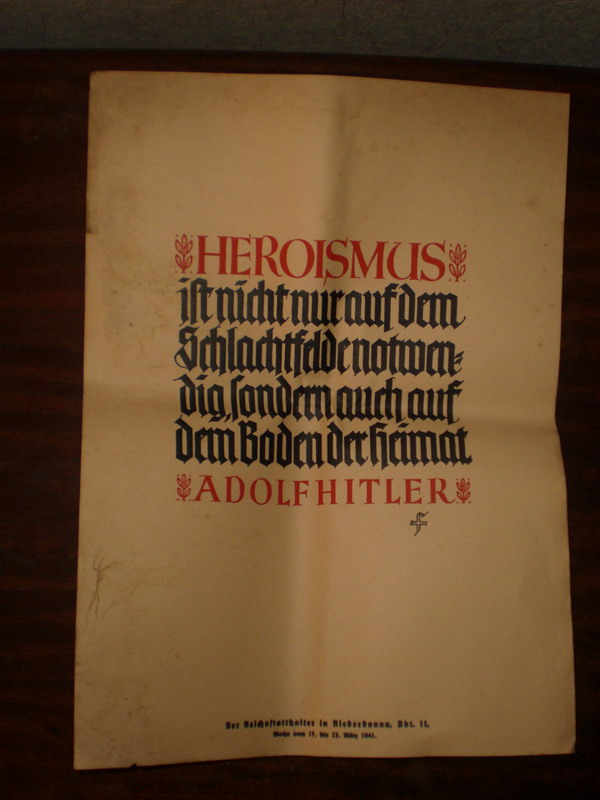 HEROISMUS
ist nicht nur auf dem
Schlachtfelde notwen-
dig, sondern auch auf
dem Boden der Heimat
ADOLF HITLER
Der Reichsstatthalter in Niederdonau, Abt. II.
Woche vom 17. bis 23. März 1941.